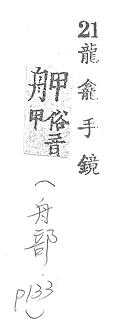 21龍龕手鏡
舺俗音甲
(舟部.p133)